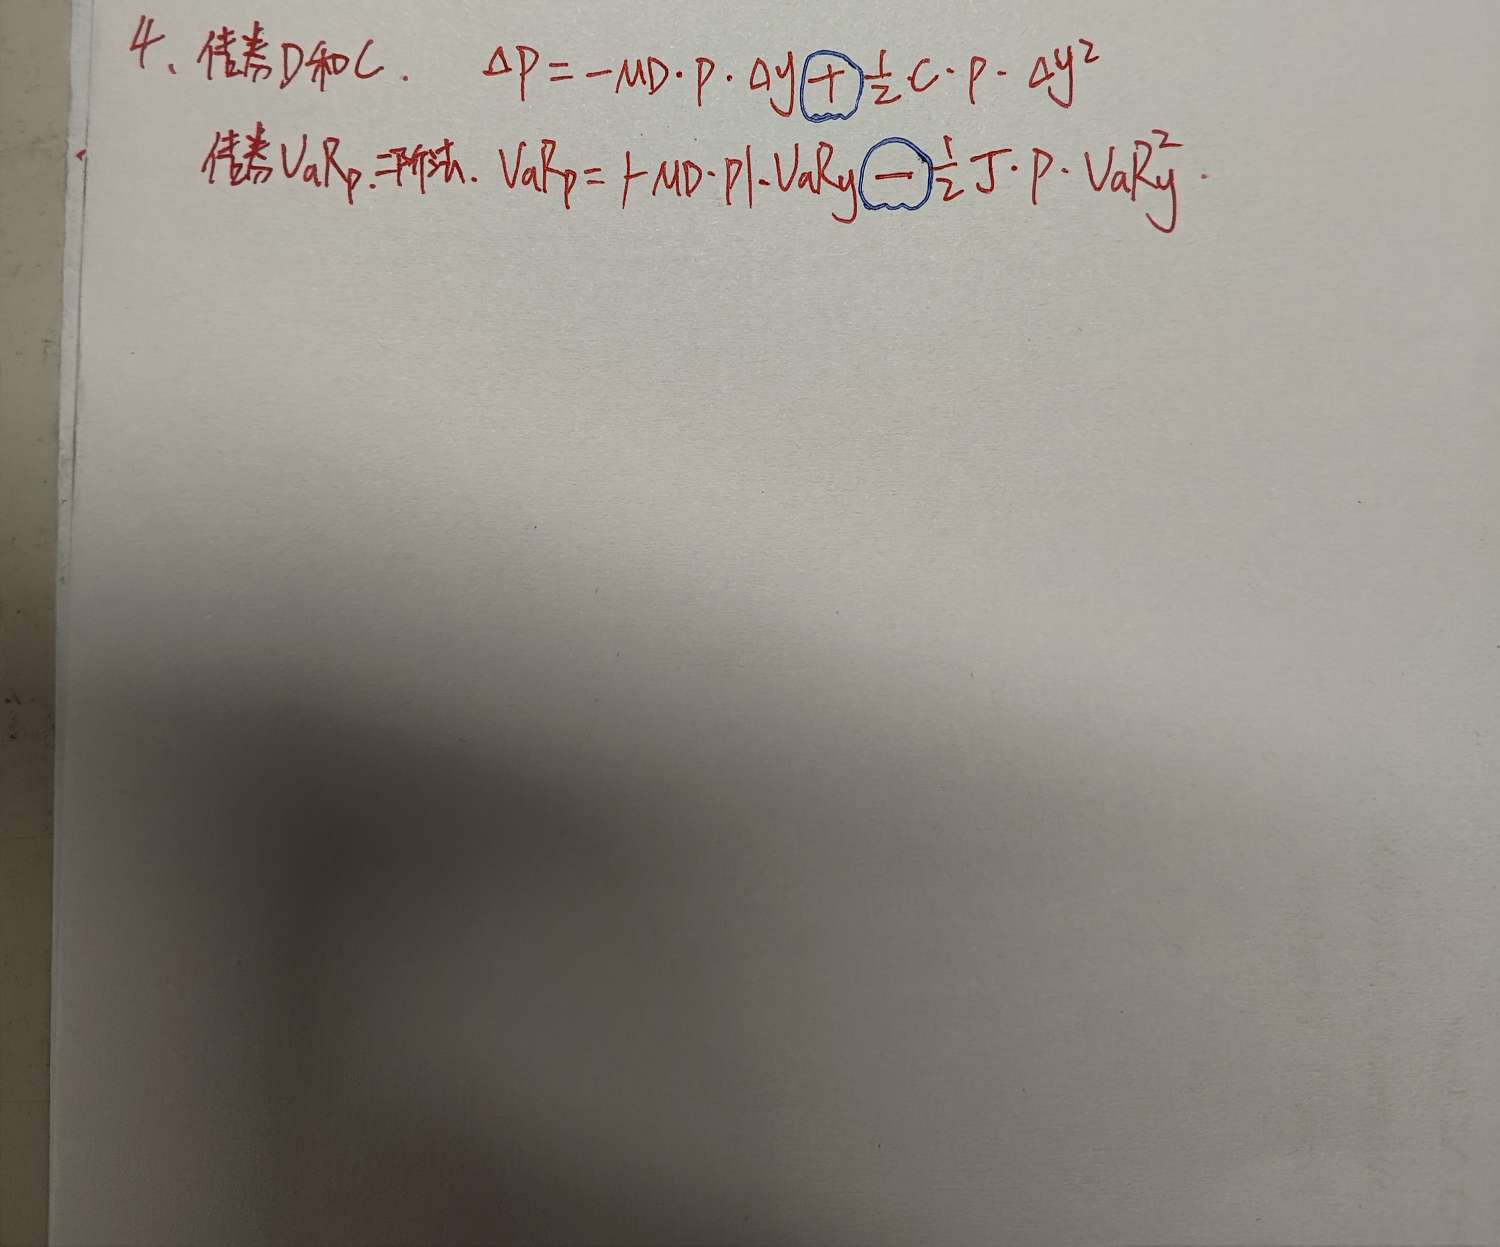 4、债券D和C. ΔP=-MD·P·Δy+½·C·P·Δy²
债券VaRp.二阶法. VaRp=|-MD·P|·VaRy-½J·P·VaRy².